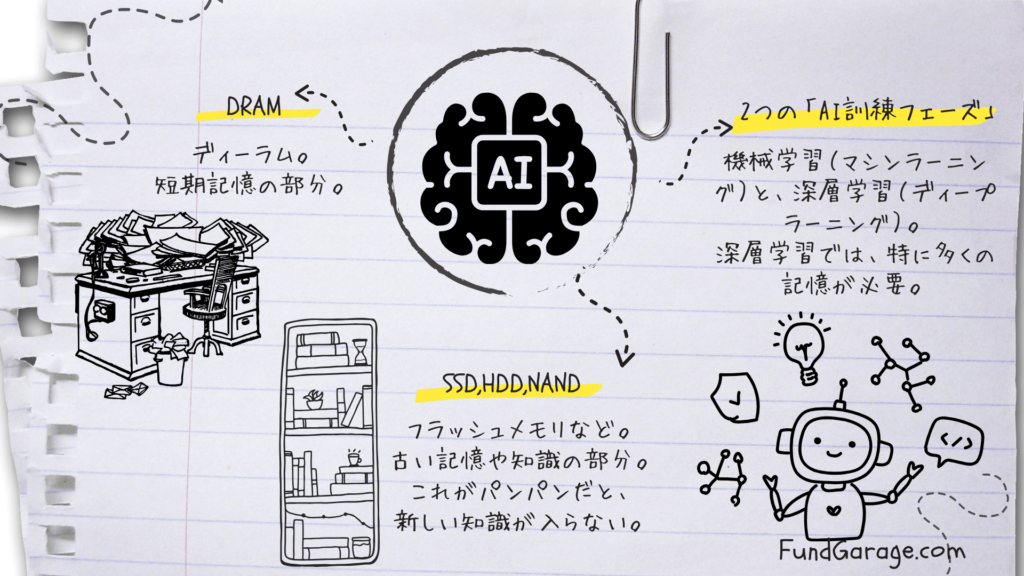 DRAM
ディーラム。
短期記憶の部分。
AI
2つの「AI訓練フェーズ」
機械学習(マシンラーニン
グ)と、深層学習(ディープ
ラーニング)。
深層学習では、特に多くの
記憶が必要。
SSD,HDD,NAND
フラッシュメモリなど。
古い記憶や知識の部分。
これがパンパンだと、
新しい知識が入らない。
</>
FundGarage.com